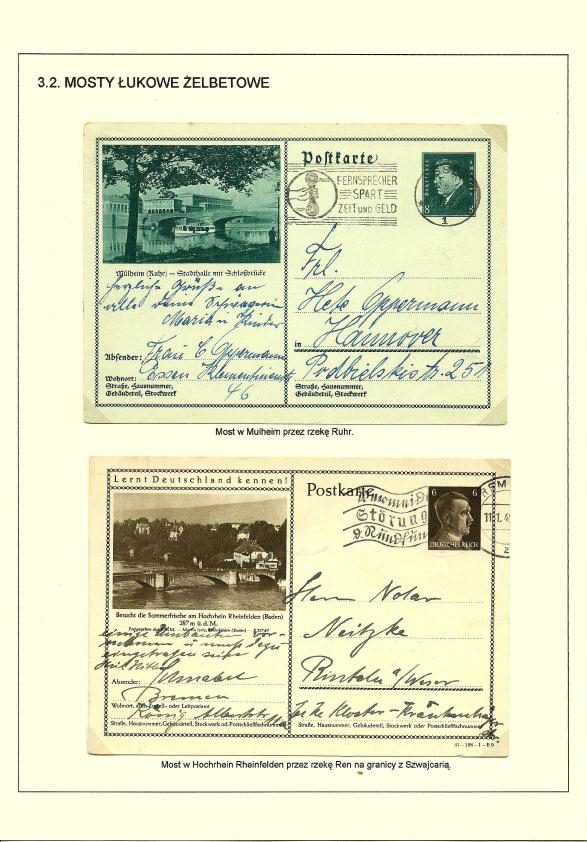 3.2. MOSTY ŁUKOWE ŻELBETOWE
Postkarte
FERNSPRECHER
SPART
ZEIT UND GELD
8
1
Mülheim (Ruhr) – Stadthalle mit Schloßbrücke
herzliche Grüße an
alle
Maria u Kinder
Absender: Frau C Oppermann
Wohnort: Essen
Straße, Hausnummer,
Gebäudeteil, Stockwerk
46
Frl.
Oppermann
in Hannover
Podbielskistr. 251
Straße, Hausnummer,
Gebäudeteil, Stockwerk
Most w Mulheim przez rzekę Ruhr.
Lernt Deutschland kennen!
Postkarte
Störung
6 6
DEUTSCHES REICH
Besucht die Sommerfrische am Hochrhein Rheinfelden (Baden)
287 m ü. d. M.
einige
Absender:
Bremen
Wohnort, auch Zustell- oder Leitpostamt
König
Straße, Hausnummer, Gebäudeteil, Stockwerk od. Postschließfachnummer
Herrn Notar
Neitzke
Rinteln a/Weser
Straße, Hausnummer, Gebäudeteil, Stockwerk oder Postschließfachnummer
41 - 188 - 1 - B 9
Most w Hochrhein Rheinfelden przez rzekę Ren na granicy z Szwajcarią.